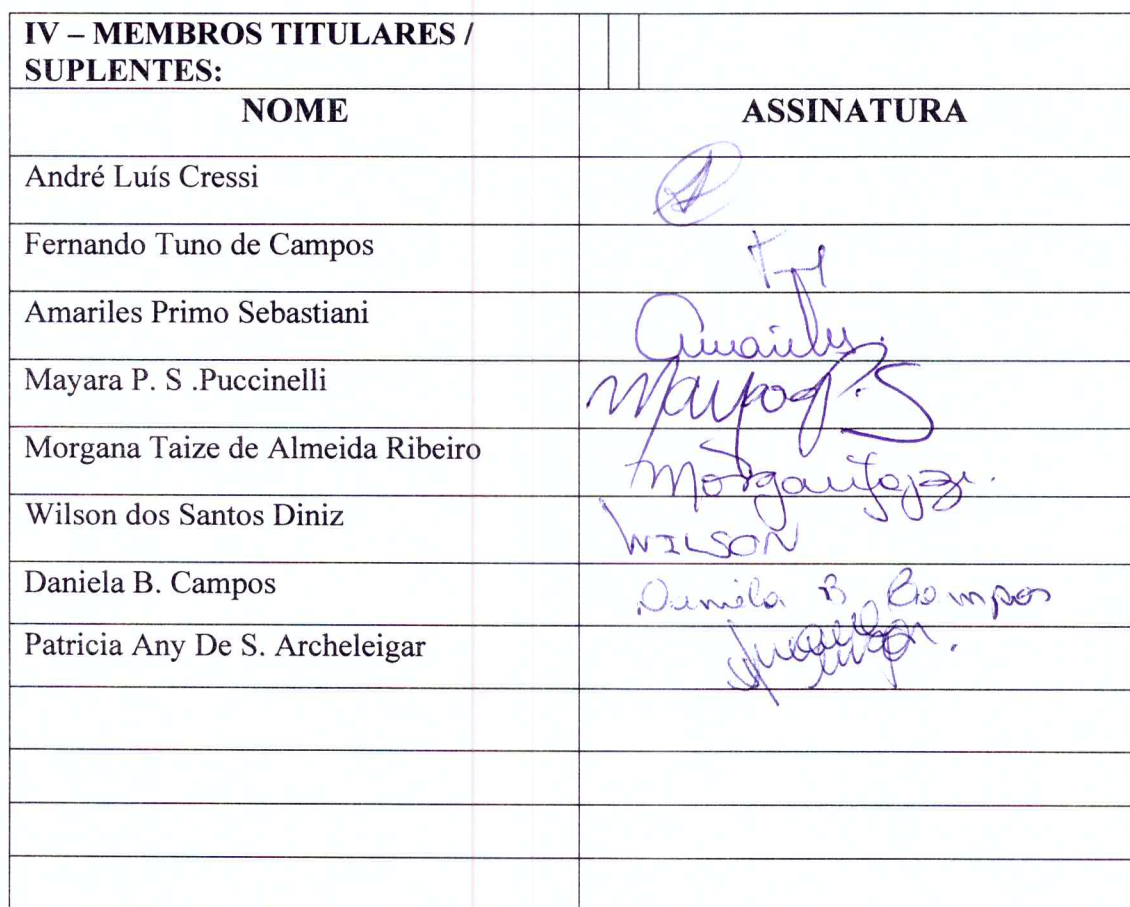 IV – MEMBROS TITULARES /
SUPLENTES:
NOME ASSINATURA
André Luís Cressi
Fernando Tuno de Campos
Amariles Primo Sebastiani
Mayara P. S .Puccinelli Mayara P.S
Morgana Taize de Almeida Ribeiro
Wilson dos Santos Diniz WILSON
Daniela B. Campos Daniela B. Campos
Patricia Any De S. Archeleigar